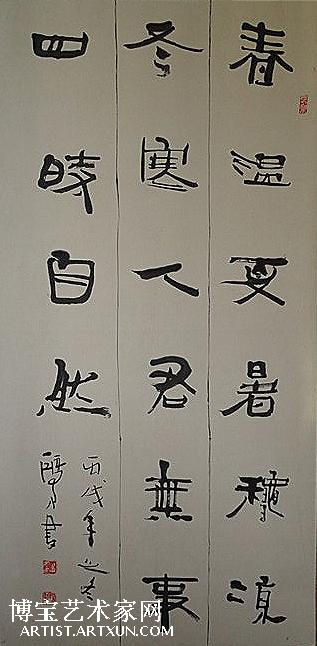 春温夏暑穐凉
冬寒人君無事
四時自然
丙戌年
博宝艺术家网
ARTIST.ARTXUN.COM